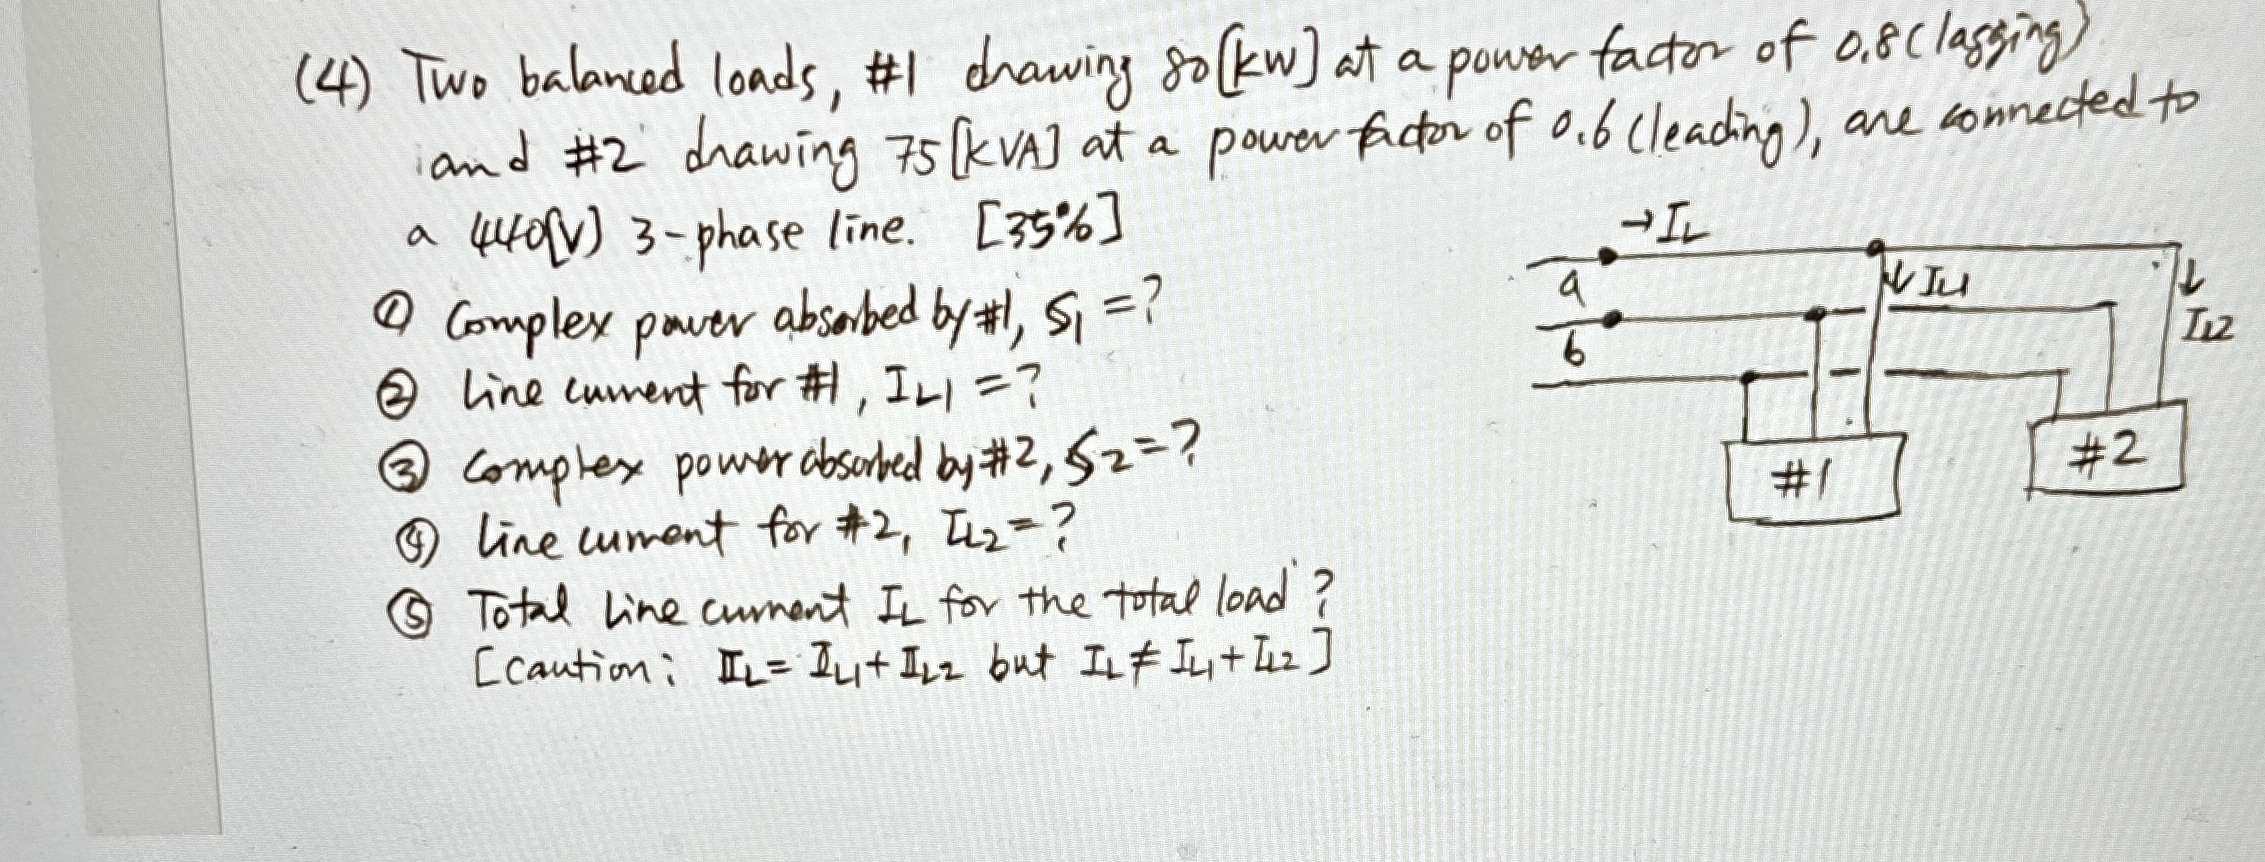 (4) Two balanced loads, #1 drawing 80[kW] at a power factor of 0.8 (lagging)
and #2 drawing 75[kVA] at a power factor of 0.6 (leading), are connected to
a 440[V] 3-phase line. [35%]
① Complex power absorbed by #1, S1 = ?
② Line current for #1, IL1 = ?
③ Complex power absorbed by #2, S2 = ?
④ Line current for #2, IL2 = ?
⑤ Total Line current IL for the total load ?
[Caution: IL = IL1 + IL2 but IL ≠ IL1 + IL2]
→ IL
a
↓ IL1
↓
IL2
b
#1
#2